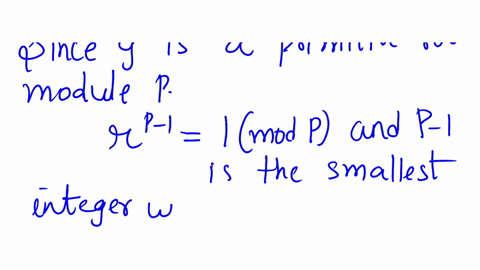 Since y is a
module P.
r^{P-1} = 1 (mod P) and P-1
is the smallest
integer w